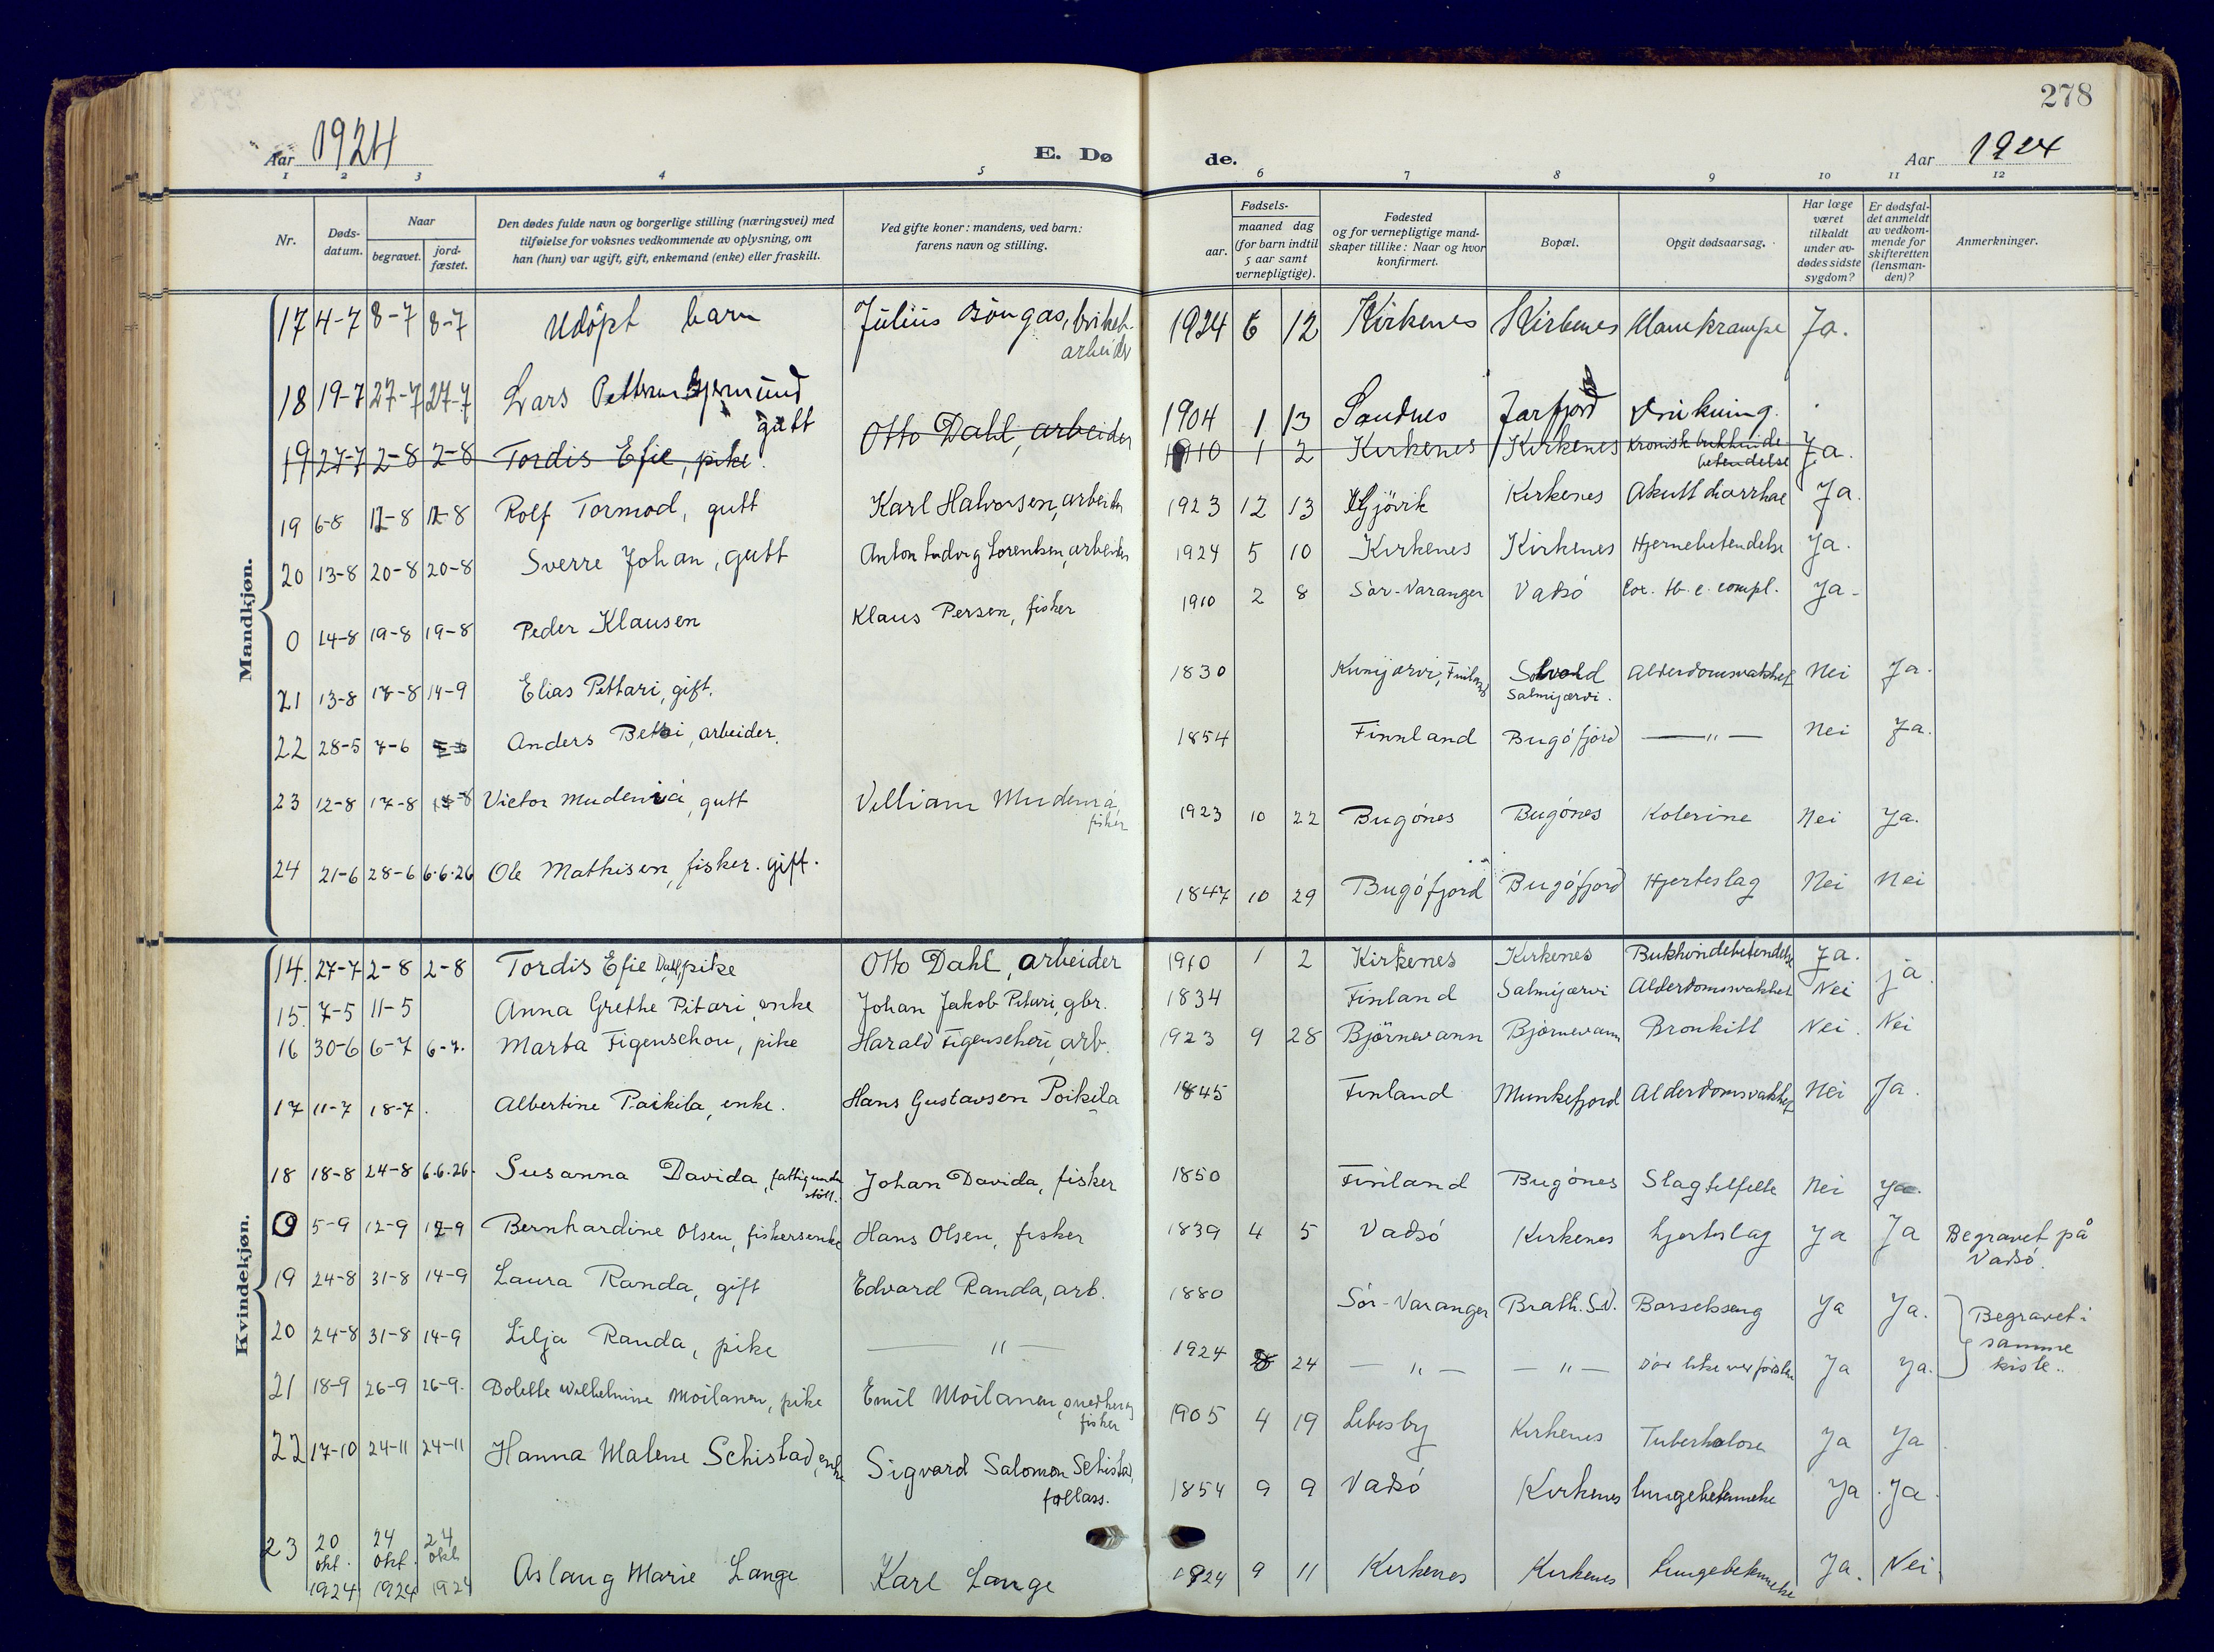 278
Aar 1924
E. Dø
de.
Aar 1924
1 2 3 4 5 6 7 8 9 10 11 12
Nr.
Døds-
datum.
Naar
begravet.
jord-
fæstet.
Den dødes fulde navn og borgerlige stilling (næringsvei) med
tilføielse for voksnes vedkommende av oplysning, om
han (hun) var ugift, gift, enkemand (enke) eller fraskilt.
Ved gifte koner: mandens, ved barn:
farens navn og stilling.
Fødsels-
aar.
maaned dag
(for barn indtil
5 aar samt
vernepligtige).
Fødested
og for vernepligtige mand-
skaper tillike: Naar og hvor
konfirmert.
Bopæl.
Opgit dødsaarsag.
Har læge
været
tilkaldt
under av-
dødes sidste
sygdom?
Er dødsfal-
det anmeldt
av vedkom-
mende for
skifteretten
(lensman-
den)?
Anmerkninger.
Mandkjøn.
17 4-7 8-7 8-7 Udöpt barn Julius
arbeider
1924 6 12 Kirkenes Kirkenes Ja.
18 19-7 27-7 27-7 Lars Petter
gutt
1904 1 13 Sandnes Jarfjord Drukning.
19 27-7 2-8 2-8 Tordis Efie, pike. Otto Dahl, arbeider 1910 1 2 Kirkenes Kirkenes kronisk bukhinde
betendelse Ja.
19 6-8 12-8 12-8 Rolf Tormod, gutt Karl Halvorsen, arbeider 1923 12 13 Gjövik Kirkenes Akutt diarrhae Ja.
20 13-8 20-8 20-8 Sverre Johan, gutt Anton Ludvig Lorentsen, arbeider 1924 5 10 Kirkenes Kirkenes Hjernebetendelse Ja.
0 14-8 19-8 19-8 Peder Klausen Klaus Persen, fisker 1910 2 8 Sör-Varanger Vadsö c. compl. Ja-
21 13-8 18-8 14-9 Elias Pettari, gift. 1830 Finland
Salmijærvi. Alderdomsvakhet Nei Ja.
22 28-5 7-6 Anders arbeider. 1854 Finnland Bugöfjord —"— Nei Ja.
23 12-8 17-8 Victor Mudeniä, gutt Villiam Mudeniä,
fisker
1923 10 22 Bugönes Bugönes Kolerine Nei Ja.
24 21-6 28-6 6.6.26 Ole Mathisen, fisker. gift. 1847 10 29 Bugöfjord Bugöfjord Hjerteslag Nei Nei
Kvindekjøn.
14. 27-7 2-8 2-8 Tordis Efie Dahl, pike Otto Dahl, arbeider 1910 1 2 Kirkenes Kirkenes Bukhindebetendelse Ja.
15. 7-5 11-5 Anna Grethe Pitari, enke Johan Jakob Pitari, gbr. 1834 Finland Salmijærvi Alderdomsvakhet Nei ja.
16 30-6 6-7 6-7. Marta Figenschou, pike Harald Figenschou, arb. 1923 9 28 Björnevann Björnevann Bronkitt Nei. Nei
17 11-7 18-7. Albertine Paikila, enke. Hans Gustavsen Poikila 1845 Finland Munkefjord Alderdomsvakhet Nei Ja.
18 18-8 24-8 6.6.26. Susanna Davida, fattigunder
stött.
Johan Davida, fisker 1850 Finland Bugönes Slagtilfelle Nei ja.
0 5-9 12-9 12-9 Bernhardine Olsen, fiskersenke Hans Olsen, fisker 1839 4 5 Vadsö Kirkenes hjerteslag Ja Ja Begravet på
Vadsö.
19 24-8 31-8 14-9 Laura Randa, gift Edvard Randa, arb. 1880 Sör-Varanger Brath. S.V. Barselseng Ja Ja. Begravet i
samme
kiste..
20 24-8 31-8 14-9 Lilja Randa, pike —"— 1924 8 24 —"— —"— Ja Ja.
21 18-9 26-9 26-9. Bolette Wilhelmine Moilanen, pike Emil Moilanen, snedker og
fisker
1905 4 19 Lebesby Kirkenes Tuberkulose Ja Ja.
22 17-10 24-11 24-11 Hanna Malene Schistad, enke Sigvard Salomon Schistad,
tollass.
1854 9 9 Vadsö Kirkenes lungebetennelse Ja Ja.
23 20
okt.
1924
24
okt.
1924
24
okt
1924
Aslaug Marie Lange Karl Lange 1924 9 11 Kirkenes Kirkenes Lungebetennelse Ja. Nei.